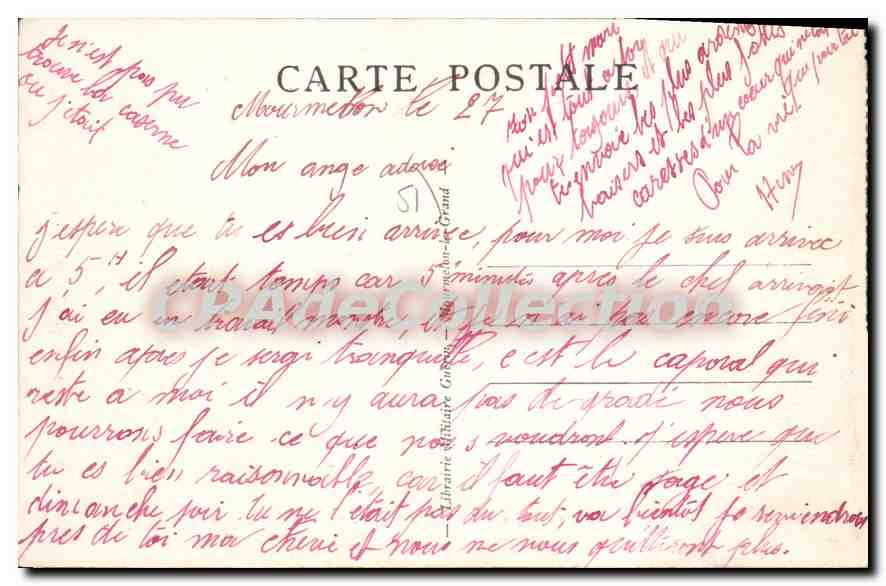 Je n'est pas pu
trouve la caserne
ou j'était
CARTE POSTALE
Mourmelon le 27
Mon ange adorée
51
Ton petit mari
qui est tout a toi
pour toujours et qui
t'envoie les plus
baisers et les plus folles
caresses d'un cœur qui ne
vit que pour toi
Pour la vie
Henry
j'espere que tu es bien arrivée, pour moi je suis arrivée
a 5H, il était temps car 5 minutes apres le chef arrivait
j'ai eu un travail monstre, et je en ai pas encore fini
enfin apres je sergi tranquille, c'est le caporal qui
reste a moi il n'y aura pas de gradé nous
pourrons faire ce que nous voudront j'espere que
tu es bien raisonnable car il faut être sage et
dimanche soir tu ne l'était pas du tout, va bientot je reviendrais
pres de toi ma cheri et nous ne nous quitteront plus.
Librairie Militaire Guérin - Mourmelon-le-Grand
CPAdeCollection